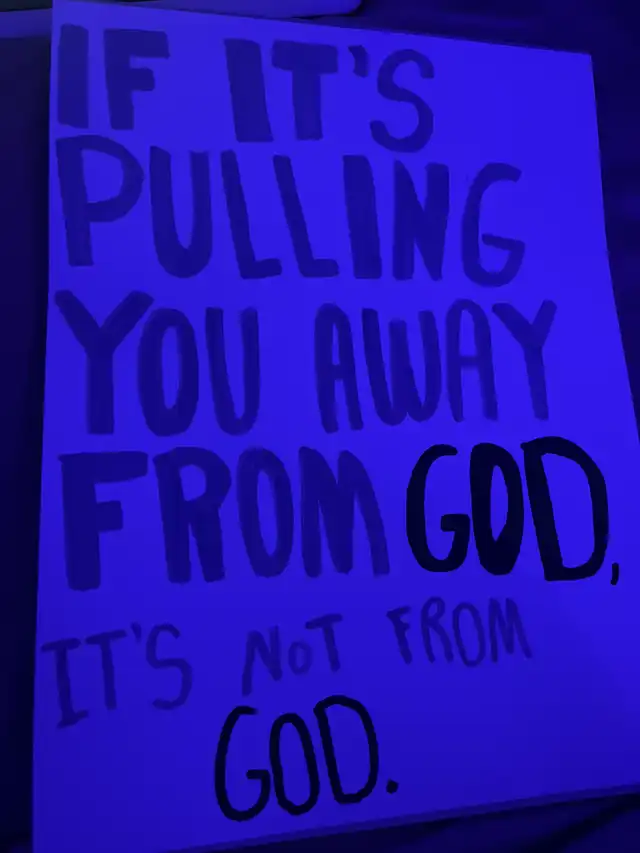 IF IT'S
PULLING
YOU AWAY
FROM GOD,
IT'S NOT FROM
GOD.